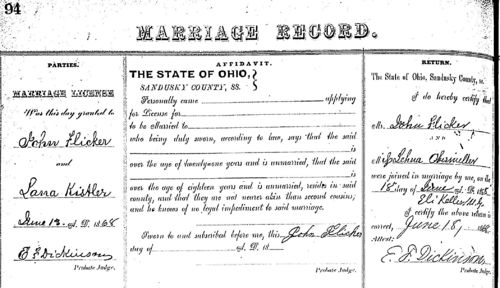 94
MARRIAGE RECORD.
PARTIES.
MARRIAGE LICENSE
Was this day granted to
John Flicker
and
Lana Kistler
June 13 A. D. 1868
E F Dickinson
Probate Judge.
AFFIDAVIT.
THE STATE OF OHIO,
SANDUSKY COUNTY, SS.
Personally came applying
for License for
to be Married to
who being duly sworn, according to law, says that the said
is
over the age of twentyone years and is unmarried, that the said
is
over the age of eighteen years and is unmarried, resides in said
county, and that they are not nearer akin than second cousins;
and he knows of no legal impediment to said marriage.
Sworn to and subscribed before me, this John Flicker
day of A. D. 18
Probate Judge.
RETURN.
The State of Ohio, Sandusky County, ss.
I do hereby certify that
Mr. John Flicker
AND
Miss
were joined in marriage by me, on the
18 day of June A. D. 1868
Eli Keller M.G.
I certify the above return is
correct, June 18, 1868
Attest:
E. F. Dickinson
Probate Judge.